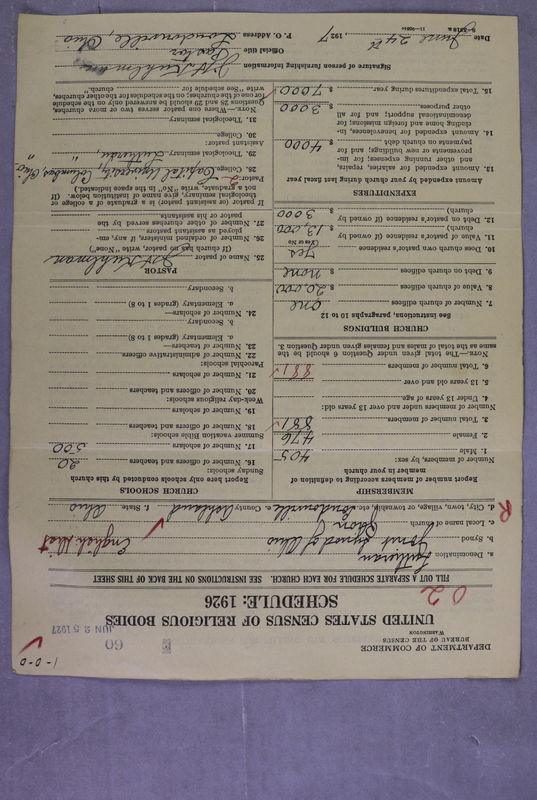 1-0-0
DEPARTMENT OF COMMERCE
BUREAU OF THE CENSUS
WASHINGTON
60
JUN 25 1927
UNITED STATES CENSUS OF RELIGIOUS BODIES
SCHEDULE: 1926
02
FILL OUT A SEPARATE SCHEDULE FOR EACH CHURCH. SEE INSTRUCTIONS ON THE BACK OF THIS SHEET
a. Denomination Lutheran
b. Synod Joint Synod of Ohio English Dist
c. Local name of church
d. City, town, village, or township, etc. Loudonville County Ashland f. State Ohio
R
MEMBERSHIP
Report number of members according to definition of
member in your church
Number of members, by sex:
1. Male 405
2. Female 476
3. Total number of members. 881
Number of members under and over 13 years old:
4. Under 13 years of age.
5. 13 years old and over
6. Total number of members 881
NOTE.—The total given under Question 6 should be the
same as the total of males and females given under Question 3.
CHURCH BUILDINGS
See instructions, paragraphs 10 to 12
7. Number of church edifices one
8. Value of church edifices $ 20,000
9. Debt on church edifices $ none
10. Does church own pastor's residence Yes
(Yes or No)
11. Value of pastor's residence (if owned by
church) $ 13,000
12. Debt on pastor's residence (if owned by
church) $ 3000
EXPENDITURES
Amount expended by your church during last fiscal year
13. Amount expended for salaries, repairs,
and other running expenses; for im-
provements or new buildings; and for
payments on church debt $ 4000
14. Amount expended for benevolences, in-
cluding home and foreign missions; for
denominational support; and for all
other purposes $ 3000
15. Total expenditures during year. $ 7000
CHURCH SCHOOLS
Report here only schools conducted by this church
Sunday schools:
16. Number of officers and teachers 20
17. Number of scholars 500
Summer vacation Bible schools:
18. Number of officers and teachers
19. Number of scholars
Week-day religious schools:
20. Number of officers and teachers
21. Number of scholars
Parochial schools:
22. Number of administrative officers
23. Number of teachers—
a. Elementary (grades 1 to 8)
b. Secondary
24. Number of scholars—
a. Elementary (grades 1 to 8)
b. Secondary
PASTOR
25. Name of pastor
(If church has no pastor, write "None")
26. Number of ordained ministers, if any, em-
ployed as assistant pastors
27. Number of other churches served by the
pastor or his assistants
If pastor (or assistant pastor) is a graduate of a college or
theological seminary, give name of institution below. (If
not a graduate, write "No" in the space indicated.)
Pastor:
28. College Capital University, Columbus, Ohio
29. Theological seminary Lutheran, " "
Assistant pastor:
30. College
31. Theological seminary
NOTE.—Where one pastor serves two or more churches,
Questions 28 and 29 should be answered only on the schedule
for one of the churches; on the schedules for the other churches,
write "See schedule for church."
Signature of person furnishing information
Official title Pastor
P. O. Address Loudonville, Ohio
Date June 24th, 1927